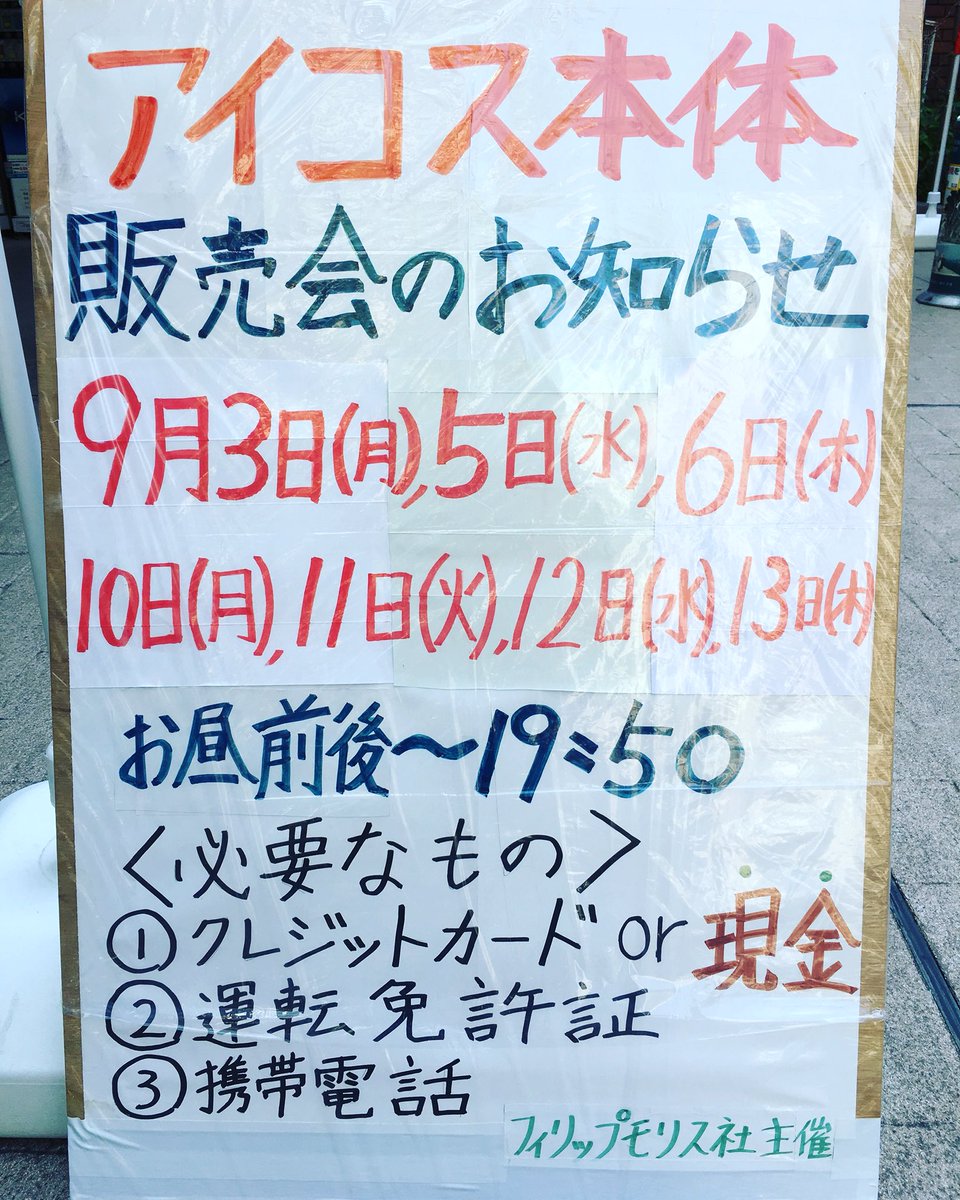 アイコス本体
販売会のお知らせ
9月3日(月),5日(水),6日(木)
10日(月),11日(火),12日(水),13日(木)
お昼前後～19:50
＜必要なもの＞
①クレジットカード or 現金
②運転免許証
③携帯電話
フィリップモリス社主催